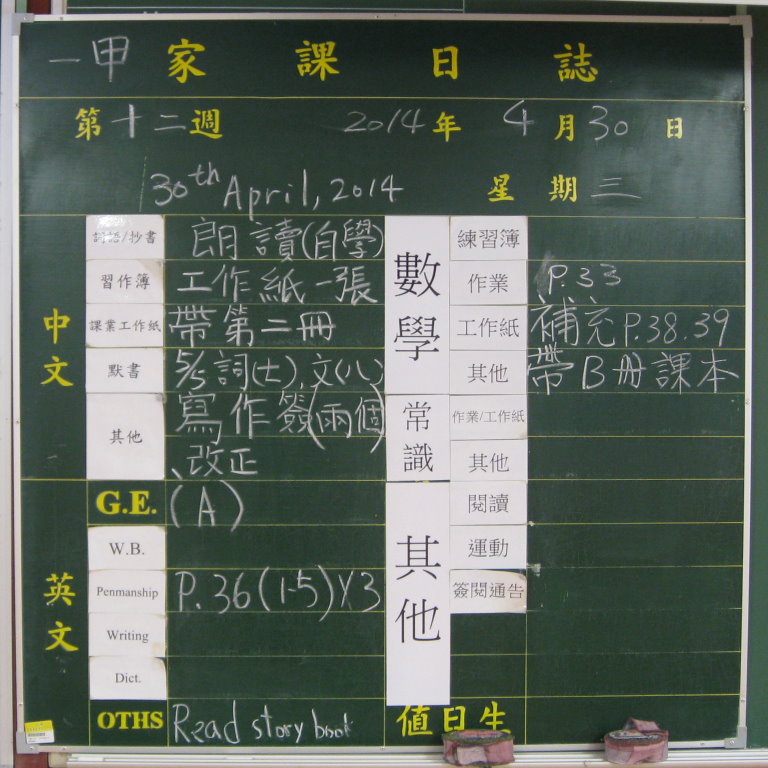 一甲 家 課 日 誌
第十二週 2014年 4月30日
30th April, 2014 星期三
中文
詞語/抄書 朗讀(自學)
習作簿 工作紙一張
課業工作紙 帶第二冊
默書 5/5詞(七),文(八)
其他 寫作簽(兩個)
、改正
英文
G.E. (A)
W.B.
Penmanship P.36(1-5)X3
Writing
Dict.
OTHS Read story book
數學
練習簿
作業 P.33
工作紙 補充P.38.39
其他 帶B冊課本
常識
作業/工作紙
其他
其他
閱讀
運動
簽閱通告
值日生